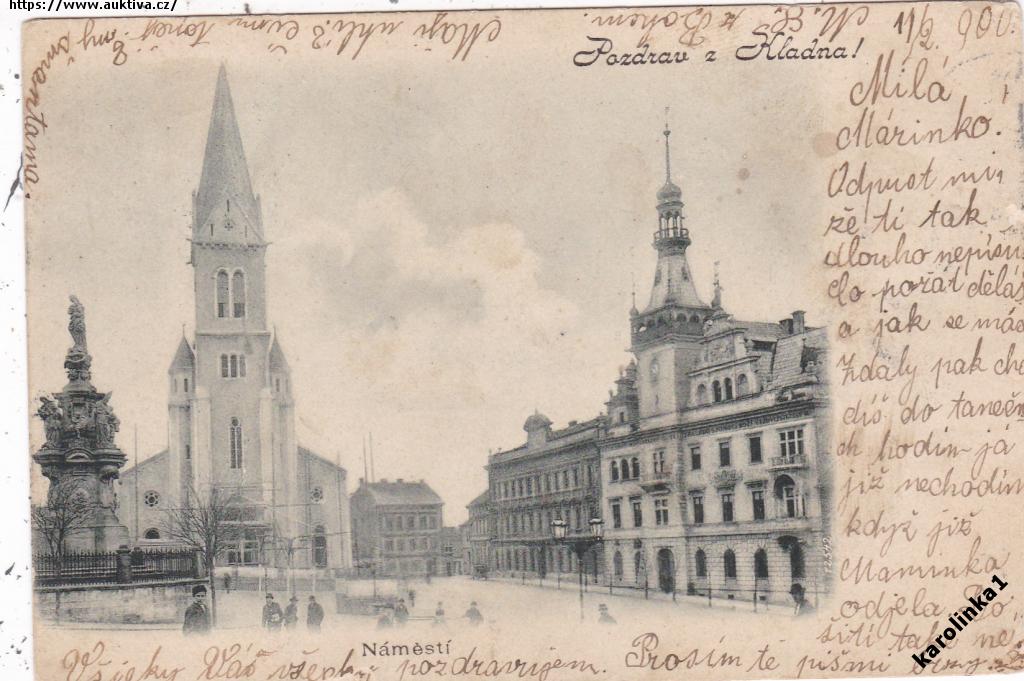 https://www.auktiva.cz/
Pozdrav z Kladna!
11/2 900.
Milá
Márinko!
Odpust mi,
že ti tak
dlouho nepísu
Co pořát dělás
a jak se más
Zdaly pak cho
díš do tanečn
ch hodin já
již nechodim
když již
Maminka
odjela
ti také ne
Náměstí
Všicky Váš všecky pozdravujem. Prosím tě pišmi brzy
karolinka1